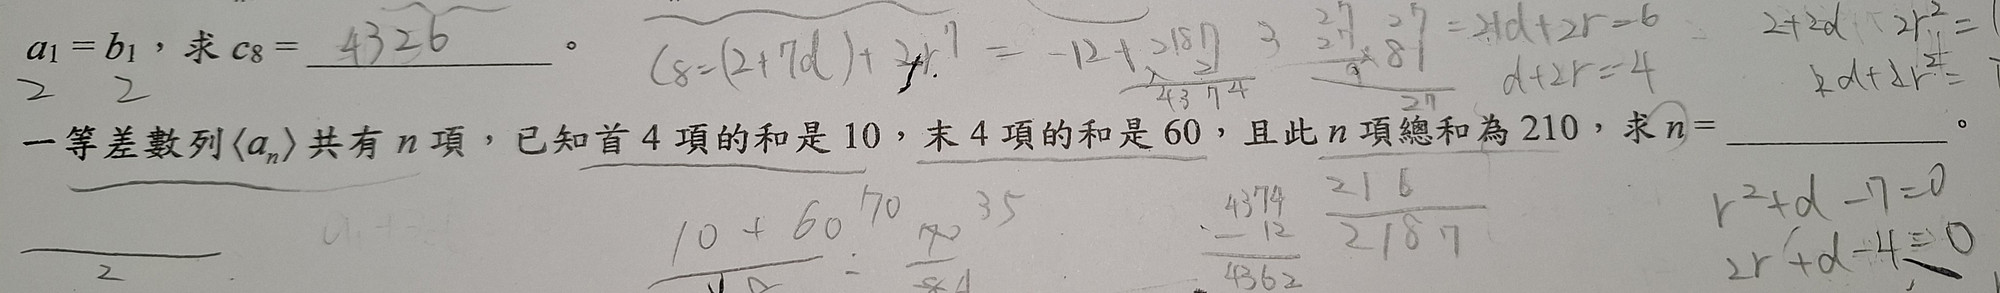 a₁ = b₁，求 c₈ = 4326 。
2 2
C₈=(2+7d)+2r⁷ = -12+2187 3
× 2
4374
27 27
27 ×81
27
=2+d+2r=6
d+2r=4
2+2d 2r²=
2d+2r²=
一等差數列⟨aₙ⟩共有 n 項，已知首 4 項的和是 10，末 4 項的和是 60，且此 n 項總和為 210，求 n = 。
2
10 + 60 70 35
4374
- 12
4362
216
2187
r²+d-7=0
2r+d-4=0